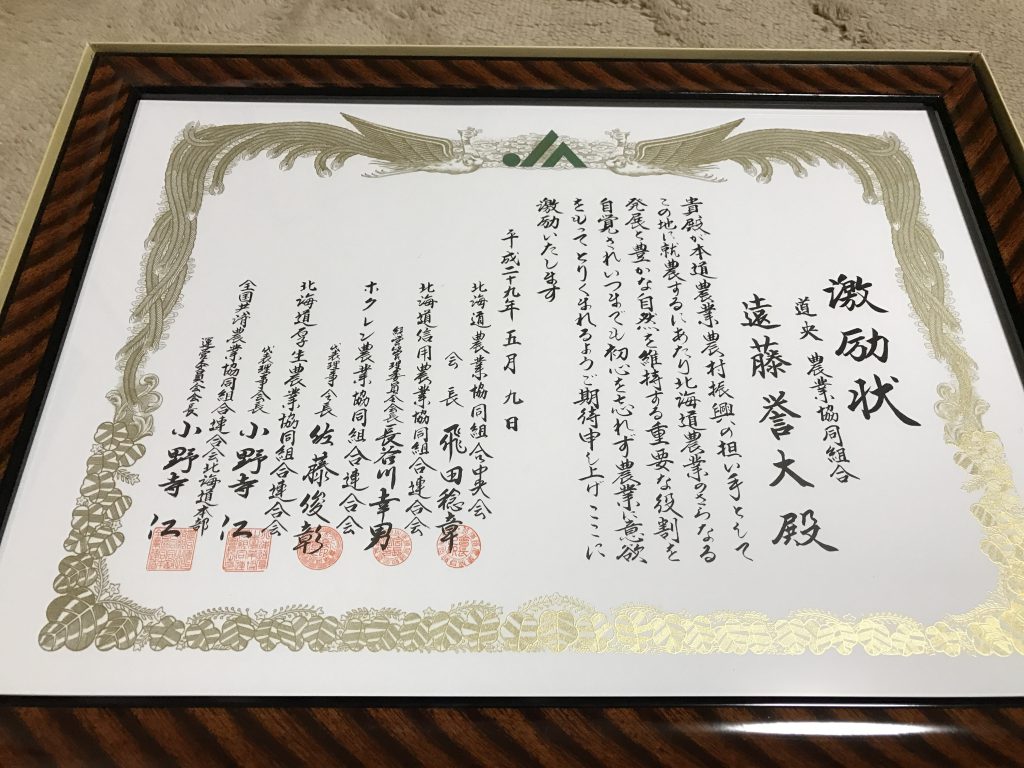 激励状
道央農業協同組合
遠藤誉大殿
貴殿が本道農業農村振興の担い手として
この地に就農するにあたり北海道農業のさらなる
発展と豊かな自然を維持する重要な役割を
自覚されいつまでも初心を忘れず農業に意欲
をもってとりくまれるようご期待申し上げここに
激励いたします
平成二十九年五月九日
北海道農業協同組合中央会
会長 飛田稔章
北海道信用農業協同組合連合会
経営管理委員会会長 長谷川幸男
ホクレン農業協同組合連合会
代表理事会長 佐藤俊彰
北海道厚生農業協同組合連合会
代表理事会長 小野寺仁
全国共済農業協同組合連合会北海道本部
運営委員会会長 小野寺仁